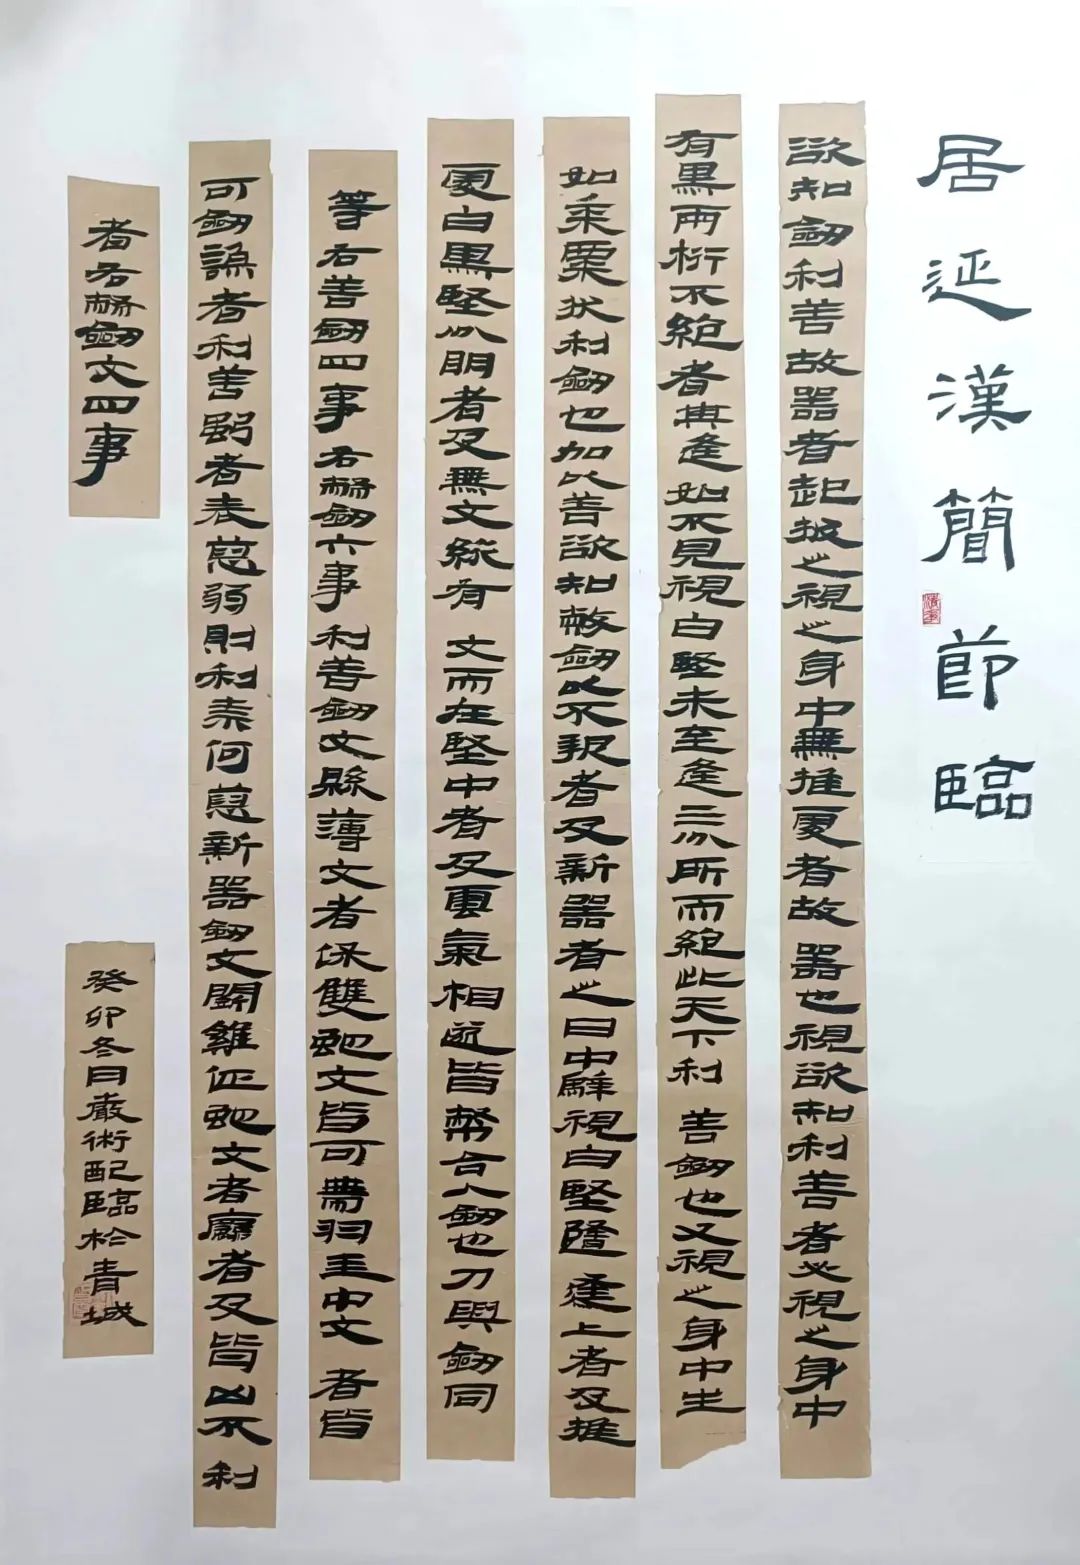 居延漢簡節臨
欲知劒利善故器者起拔之視之身中無推更者故器也視欲知利善者必視之身中
有黑兩桁不絕者其逢如不見視白堅未至逢三分所而絕此天下利善劒也又視之身中生
如黍粟狀利劒也加以善欲知幣劒以不報者及新器者之日中騂視白堅隨逢上者及推
更白黑堅分明者及無文縱有文而在堅中者及雲氣相遂皆幣合人劒也刀與劒同
等右善劒四事右幣劒六事利善劒文縣薄文者保雙蛇文皆可帶羽圭中文者皆
可劒謙者利善強者表恿弱則利奈何恿新器劒文鬭雞佂蛇文者麤者及皆凶不利
者右幣劒文四事
癸卯冬月嚴術配臨於青城